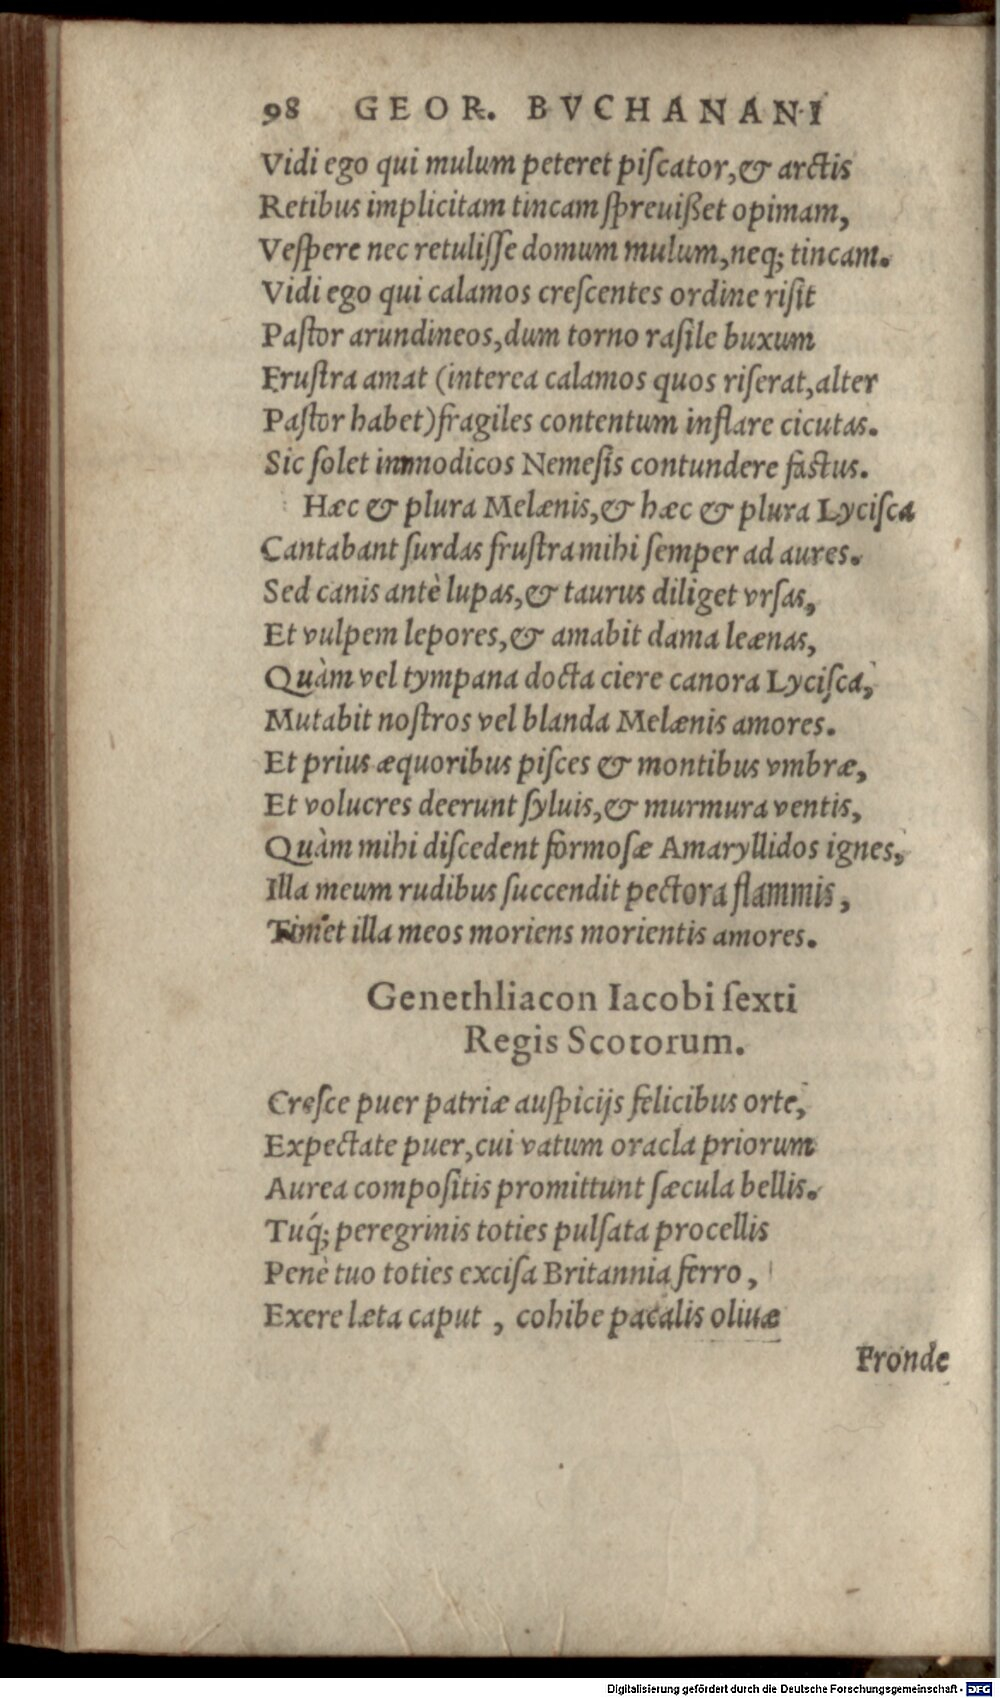 98 GEOR. BVCHANANI
Vidi ego qui mulum peteret piſcator, & arctis
Retibus implicitam tincam ſpreuißet opimam,
Veſpere nec retuliſſe domum mulum, neq; tincam.
Vidi ego qui calamos creſcentes ordine riſit
Paſtor arundineos, dum torno raſile buxum
Fruſtra amat (interea calamos quos riſerat, alter
Paſtor habet) fragiles contentum inflare cicutas.
Sic ſolet immodicos Nemeſis contundere faſtus.
Hæc & plura Melænis, & hæc & plura Lyciſca
Cantabant ſurdas fruſtra mihi ſemper ad aures.
Sed canis antè lupas, & taurus diliget vrſas,
Et vulpem lepores, & amabit dama leænas,
Quàm vel tympana docta ciere canora Lyciſca,
Mutabit noſtros vel blanda Melænis amores.
Et prius æquoribus piſces & montibus vmbræ,
Et volucres deerunt ſyluis, & murmura ventis,
Quàm mihi diſcedent formoſæ Amaryllidos ignes,
Illa meum rudibus ſuccendit pectora flammis,
Finiet illa meos moriens morientis amores.
Genethliacon Iacobi ſexti
Regis Scotorum.
Creſce puer patriæ auſpicijs felicibus orte,
Expectate puer, cui vatum oracla priorum
Aurea compoſitis promittunt ſæcula bellis.
Tuq́; peregrinis toties pulſata procellis
Penè tuo toties exciſa Britannia ferro,
Exere læta caput, cohibe pacalis oliuæ
Fronde
Digitalisierung gefördert durch die Deutsche Forschungsgemeinschaft - DFG